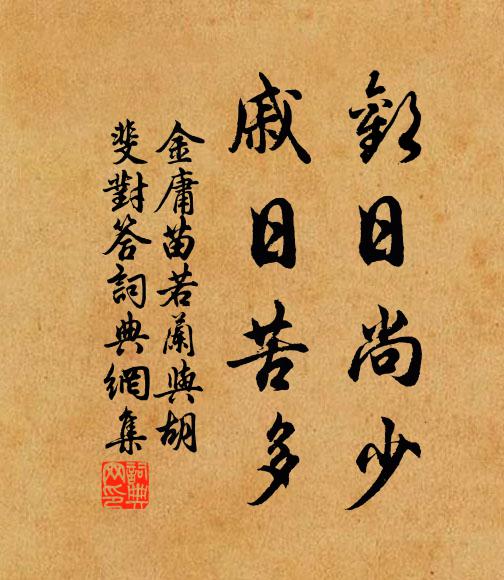 歡日尚少
戚日苦多
金庸苗若蘭與胡
斐對答詞典網集
詞典
网印